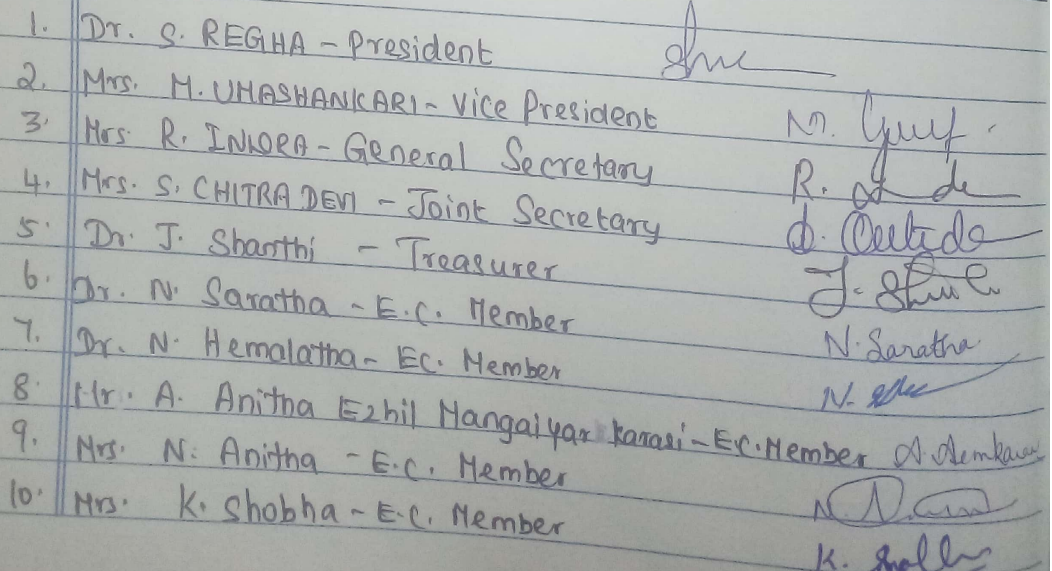 1. Dr. S. REGHA - President
2. Mrs. M. UMASHANKARI - Vice President M.
3. Mrs R. INDRA - General Secretary R.
4. Mrs. S. CHITRA DEVI - Joint Secretary
5. Dr. J. Shanthi - Treasurer J.
6. Dr. N. Saratha - E.C. Member N. Saratha
7. Dr. N. Hemalatha - EC. Member N.
8. Mr. A. Anitha Ezhil Mangaiyar Karasi - E.C. Member A.
9. Mrs. N. Anitha - E.C. Member N.
10. Mrs. K. Shobha - E.C. Member K.